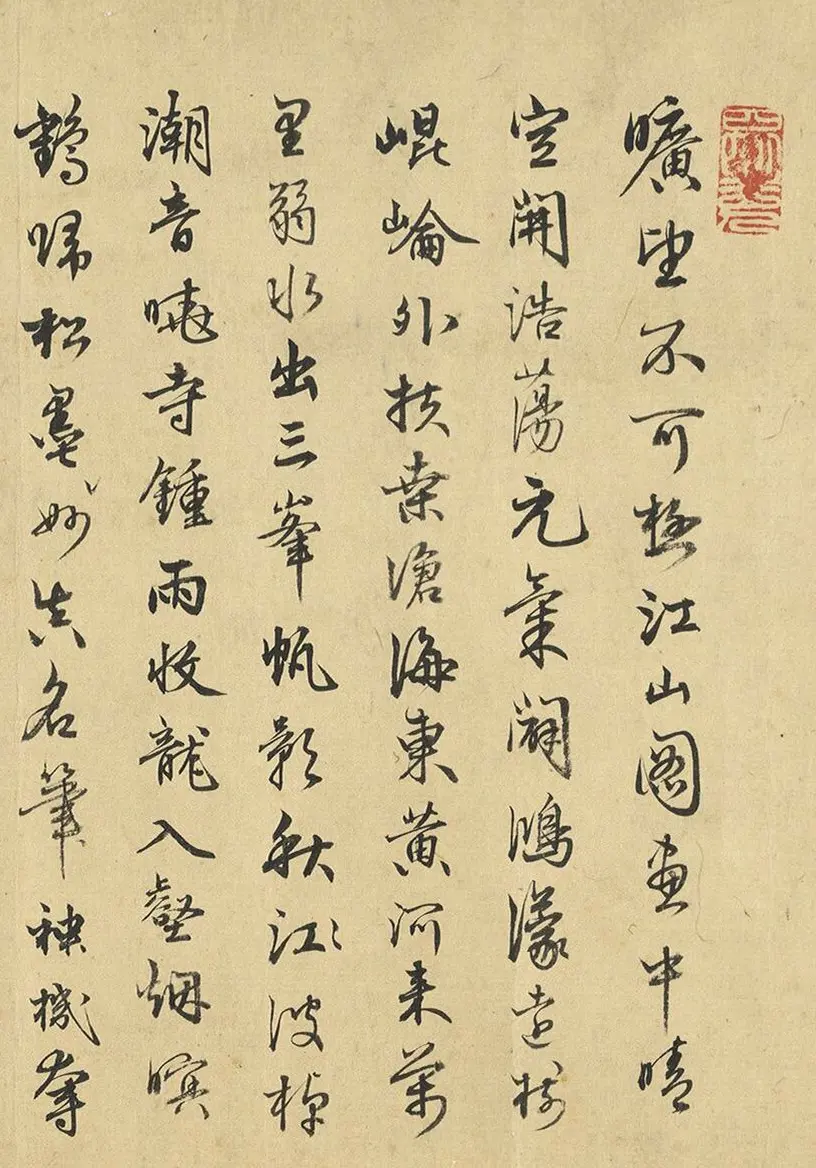 曠望不可極江山圖畫中晴
空開浩蕩元氣闢鴻濛遠樹
崐崘外扶桒滄海東黃河来萬
里弱水出三峯帆影秋江波棹
潮音曉寺鍾雨收龍入壑烟暝
鶴歸松墨妙真名筆神機奪